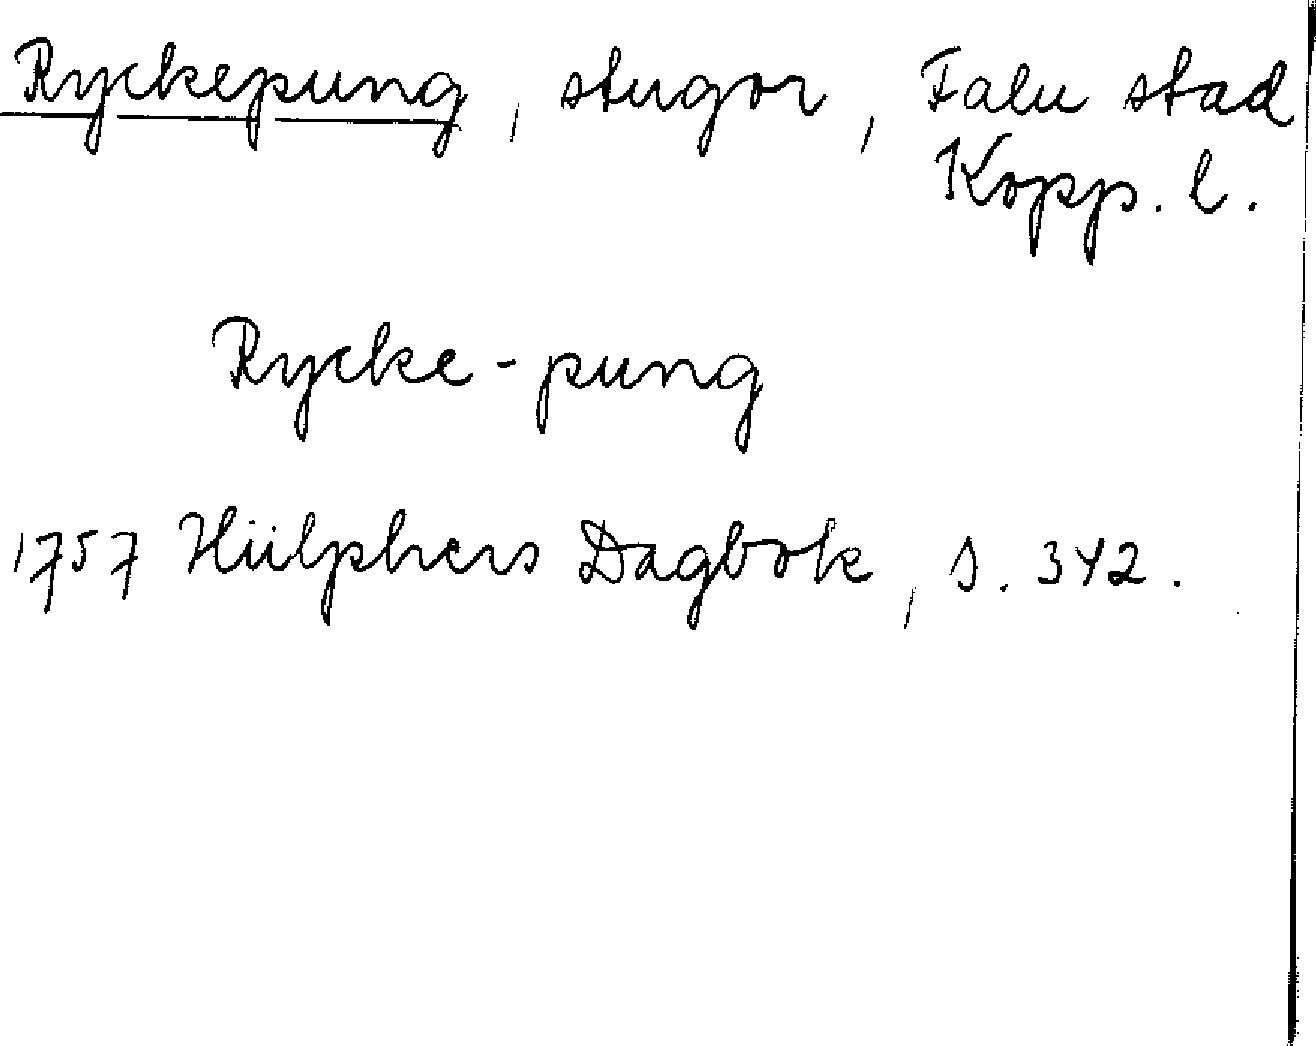 Ryckepung, stugor, Falu stad
Kopp. l.
Rycke-pung
1757 Hülphers Dagbok, s. 342.